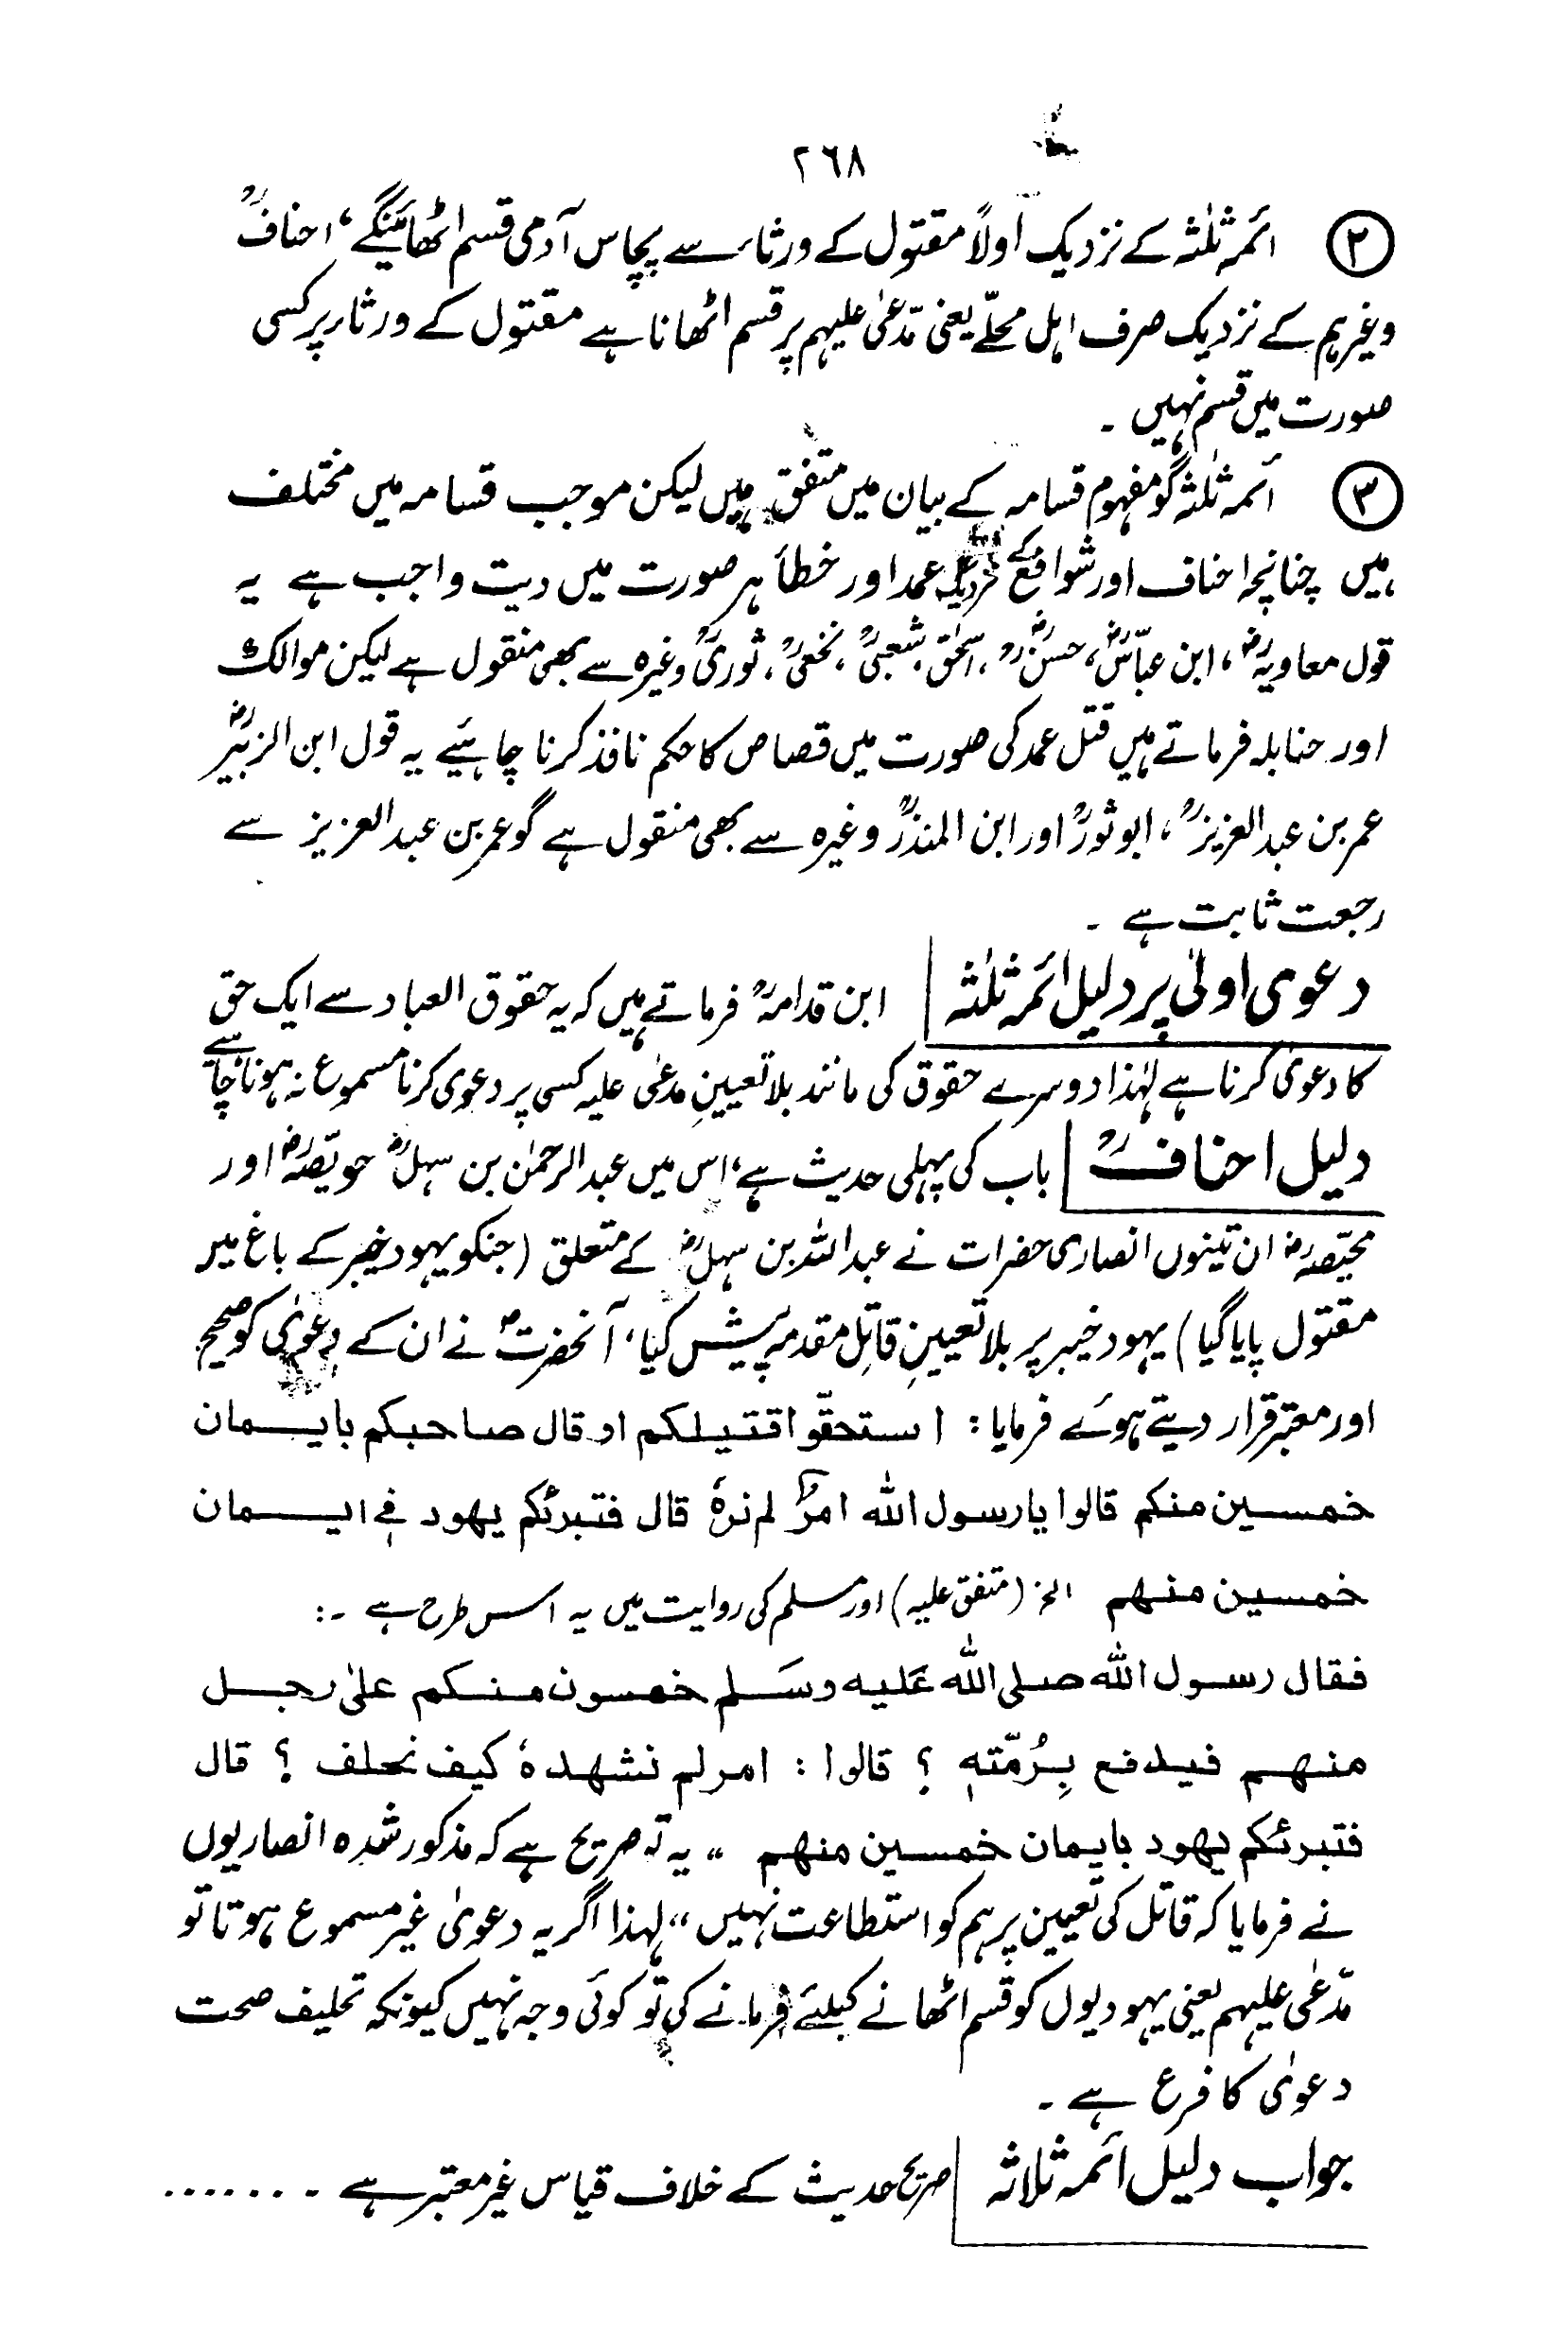 ٢٦٨
② ائمہ ثلٰثہ کے نزدیک اولاً مقتول کے ورثاء سے پچاس آدمی قسم اٹھائینگے، احنافؒ
وغیرہم کے نزدیک صرف اہل محلّے یعنی مدّعیٰ علیہم پر قسم اٹھانا ہے مقتول کے ورثاء پر کسی
صورت میں قسم نہیں ۔
③ ائمہ ثلٰثہ گو مفہوم قسامہ کے بیان میں متفق ہیں لیکن موجب قسامہ میں مختلف
ہیں چنانچہ احناف اور شوافعؒ کے نزدیک عمد اور خطأ ہر صورت میں دیت واجب ہے یہ
قول معاویہؓ، ابن عباسؓ، حسنؒ، اسحٰقؒ، شعبیؒ، نخعیؒ، ثوریؒ وغیرہ سے بھی منقول ہے لیکن موالک
اور حنابلہ فرماتے ہیں قتل عمد کی صورت میں قصاص کا حکم نافذ کرنا چاہئیے یہ قول ابن الزبیرؓ
عمر بن عبد العزیزؒ، ابو ثورؒ اور ابن المنذرؒ وغیرہ سے بھی منقول ہے گو عمر بن عبد العزیز سے
رجعت ثابت ہے ۔
دعوی اولیٰ پر دلیل ائمہ ثلٰثہ ابن قدامہؒ فرماتے ہیں کہ یہ حقوق العباد سے ایک حق
کا دعویٰ کرنا ہے لہٰذا دوسرے حقوق کی مانند بلا تعیینِ مدعٰی علیہ کسی پر دعوی کرنا مسموع نہ ہونا چاہئے
دلیل احنافؒ باب کی پہلی حدیث ہے، اس میں عبد الرحمٰن بن سہلؓ حویّصہؓ اور
محیّصہؓ ان تینوں انصاری حضرات نے عبد اللہ بن سہلؓ کے متعلق (جنکو یہود خیبر کے باغ میں
مقتول پایا گیا) یہود خیبر پر بلا تعیینِ قاتِل مقدمہ پیش کیا، آنحضرتؐ نے ان کے دعویٰ کو صحیح
اور معتبر قرار دیتے ہوئے فرمایا : استحقّوا قتیلکم او قال صاحبکم بایمان
خمسین منکم قالوا یا رسول اللہ امرٌ لم نرہٗ قال فتبرئکم یھود فی ایمان
خمسین منھم الخ (متفق علیہ) اور مسلم کی روایت میں یہ اس طرح ہے ۔:
فقال رسول اللہ صلی اللہ عَلیہ وسَلم خمسون منکم علیٰ رجل
منھم فیدفع بِرُمّتہٖ ؟ قالوا : امر لم نشھدہٗ کیف نحلف ؟ قال
فتبرئکم یھود بایمان خمسین منھم „ یہ تو صریح ہے کہ مذکور شدہ انصاریوں
نے فرمایا کہ قاتل کی تعیین پر ہم کو استطاعت نہیں „ لہذا اگر یہ دعویٰ غیر مسموع ہوتا تو
مدّعٰی علیہم یعنی یہودیوں کو قسم اٹھانے کیلئے فرمانے کی تو کوئی وجہ نہیں کیونکہ تحلیف صحت
دعویٰ کا فرع ہے ۔
جواب دلیل ائمہ ثلاثہ صریح حدیث کے خلاف قیاس غیر معتبر ہے ۔ ......